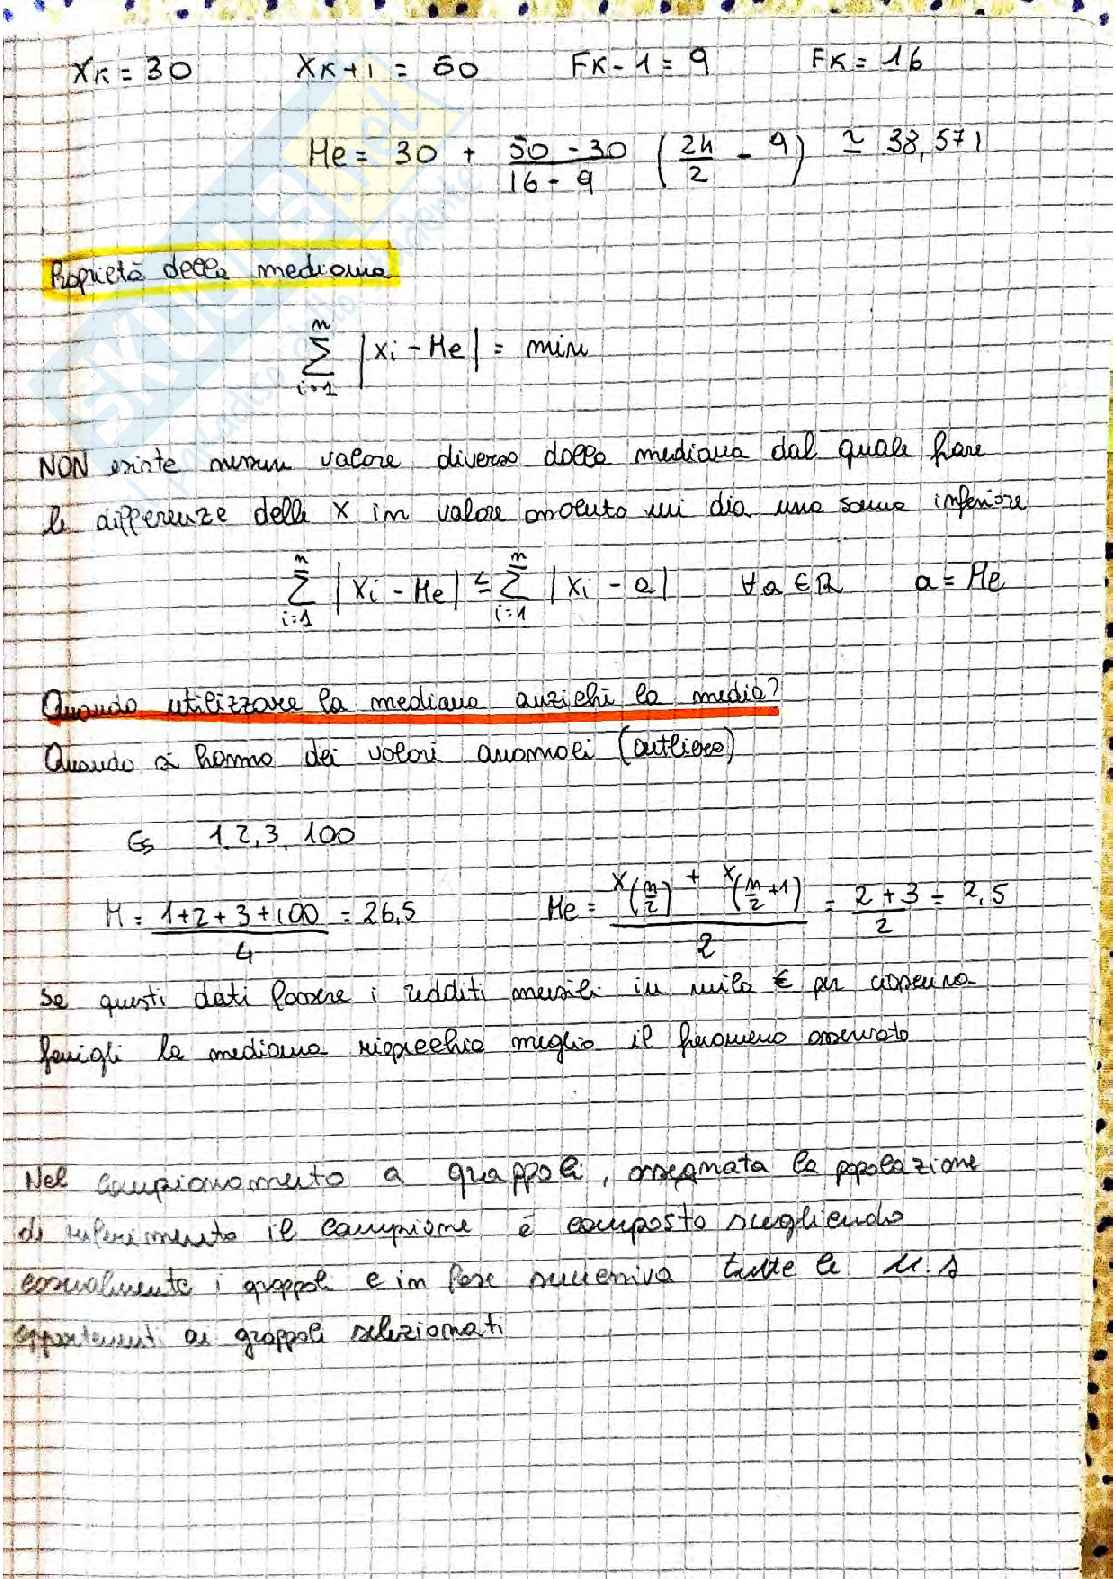 XK = 30 XK+1 = 50 FK-1 = 9 FK = 16
Me = 30 + 50 - 30 / 16 - 9 (24/2 - 9) ≃ 38,571
Proprietà della mediana
n∑i=1 |xi - Me| = min
NON esiste nessun valore diverso dalla mediana dal quale fare
le differenze delle X in valore assoluto mi dia una somma inferiore
n∑i=1 |Xi - Me| ≤ n∑i=1 |Xi - a| ∀a ∈ R a = Me
Quando utilizzare la mediana anziché la media?
Quando ci hanno dei valori anomali (outliers)
Es 1,2,3,100
M = 1+2+3+100 / 4 = 26,5 Me = X(n/2) + X(n/2+1) / 2 = 2+3 / 2 = 2,5
Se questi dati fossere i redditi mensili in mila € per ciascuna
famigli la mediana rispecchia meglio il fenomeno osservato
Nel campionamento a grappoli, assegnata la popolazione
di riferimento il campione è composto scegliendo
casualmente i grappoli e in fase successiva tutte le u.s
appartenenti ai grappoli selezionati